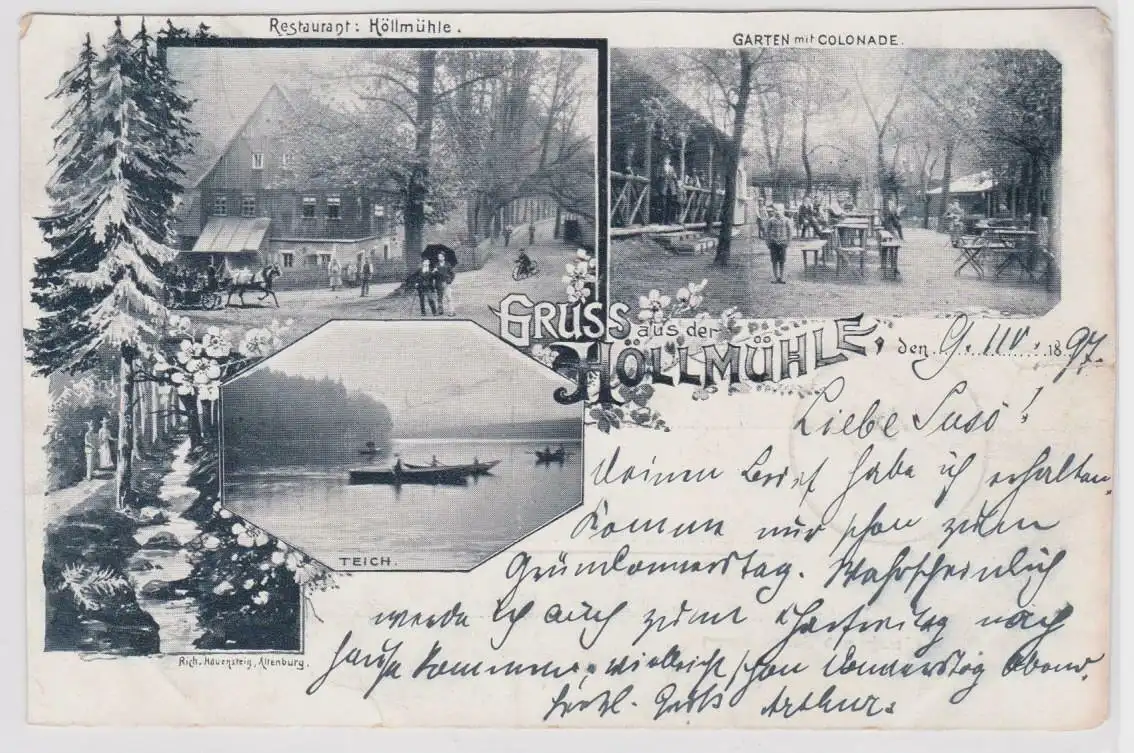 Restaurant: Höllmühle.
GARTEN mit COLONADE.
GRUSS aus der HÖLLMÜHLE,
den 9. IIV. 1897.
Liebe Susi!
Deinen Brief habe ich erhalten.
Komme nur schon zum
Gründonnerstag. Wahrscheinlich
werde ich auch zum Charfreitag nach
Hause kommen, vielleicht schon Donnerstag Abend.
Herzl. Gruß Arthur.
TEICH.
Rich. Hauenstein, Altenburg.